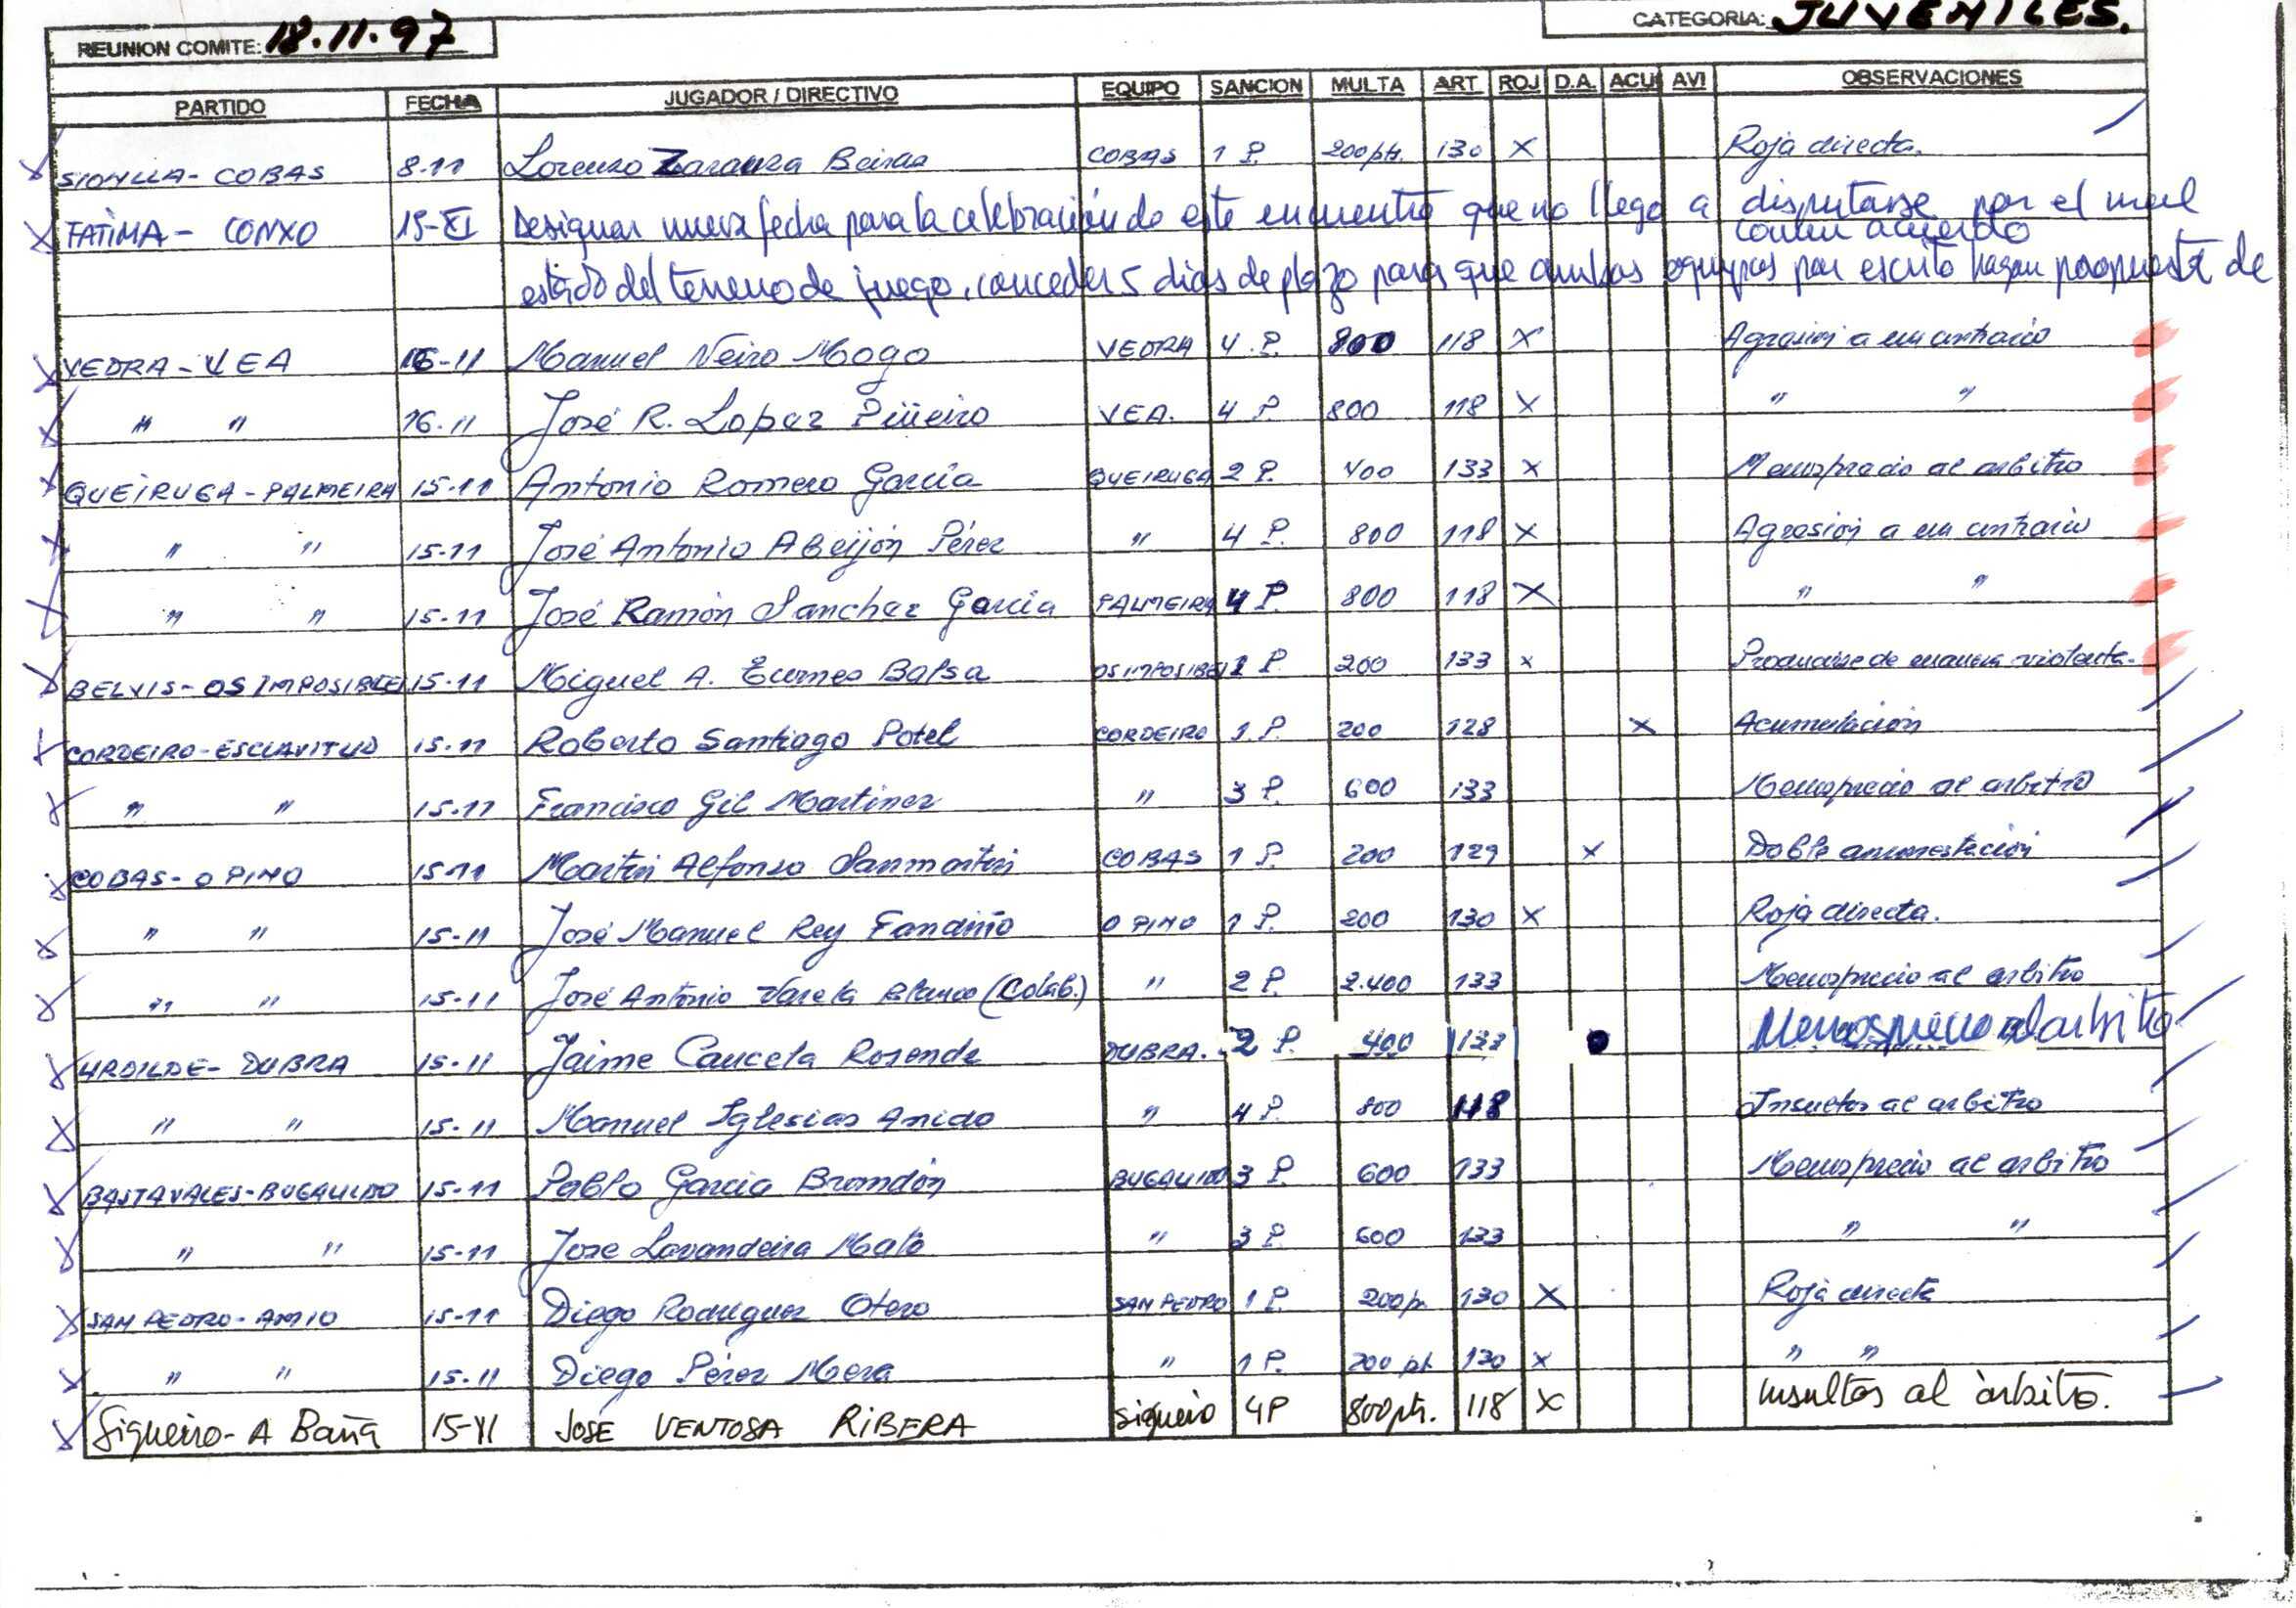 REUNION COMITE: 18.11.97 CATEGORIA: JUVENILES.
PARTIDO FECHA JUGADOR / DIRECTIVO EQUIPO SANCION MULTA ART ROJ D.A. ACU AVI OBSERVACIONES
SIONLLA - COBAS 8-11 Lorenzo COBAS 1 P. 200 pts. 130 X Roja directa.
FATIMA - CONXO 15-XI Designar nueva fecha para la celebración de este encuentro que no llego a disputarse por el mal
comun acuerdo
estado del terreno de juego, conceder 5 dias de plazo para que ambos equipos por escrito hagan propuesta de
VEDRA - VEA 16-11 Manuel Neiro Mogo VEDRA 4 P. 800 118 X Agresión a un contrario
" " 16.11 José R. Lopez Piñeiro VEA. 4 P. 800 118 X " "
QUEIRUGA - PALMEIRA 15-11 Antonio Romero García QUEIRUGA 2 P. 400 133 X Menosprecio al arbitro
" " 15-11 José Antonio Abeijón Pérez " 4 P. 800 118 X Agresión a un contrario
" " 15-11 José Ramón Sanchez García PALMEIRA 4 P. 800 118 X " "
BELVIS - OS IMPOSIBLES 15-11 Miguel A. Balsa 1 P. 200 133 x Producirse de manera violenta.
CORDEIRO - ESCLAVITUD 15-11 Roberto Santiago Potel CORDEIRO 1 P. 200 128 X Acumulación
" " 15-11 Francisco Gil Martinez " 3 P. 600 133 Menosprecio al arbitro
COBAS - O PINO 15-11 Martin Alfonso Sanmartin COBAS 1 P. 200 129 X Doble amonestación
" " 15-11 José Manuel Rey Fandiño O PINO 1 P. 200 130 X Roja directa.
" " 15-11 José Antonio Varela Blanco (Colab.) " 2 P. 2.400 133 Menosprecio al arbitro
URDILDE - DUBRA 15-11 Jaime Cancela Rosende DUBRA. 2 P. 400 133 Menosprecio al arbitro
" " 15-11 Manuel Iglesias Anido " 4 P. 800 118 Insultos al arbitro
BASTAVALES - BUGALLIDO 15-11 Pablo Garcia Brandón BUGALLIDO 3 P. 600 133 Menosprecio al arbitro
" " 15-11 Jose Lavandeira Mato " 3 P. 600 133 " "
SAN PEDRO - AMIO 15-11 Diego Rodriguez Otero SAN PEDRO 1 P. 200 p. 130 X Roja directa
" " 15-11 Diego Pérez Mera " 1 P. 200 pt. 130 X " "
Sigueiro - A Baña 15-XI JOSÉ VENTOSA RIBERA Sigueiro 4P 800 pts. 118 X insultos al àrbitro.